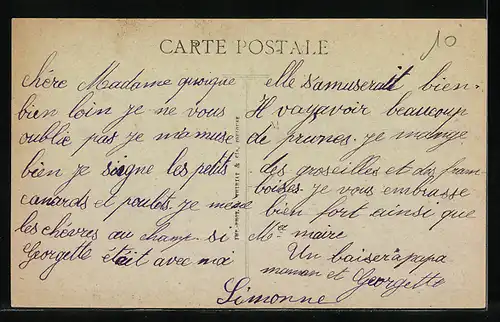 10
CARTE POSTALE
chére Madame quoique
bien loin je ne vous
oublie pas je m'amuse
bien je soigne les petits
canards et poulets. je mene
les chévres au champ. si
Georgette était avec moi
elle s'amuserait bien.
Il va yavoir beaucoup
de prunes. je mange
des groseilles et des fram
boises. je vous embrasse
bien fort ainsi que
Mme maire
Un baiser à papa
maman et Georgette
Simonne